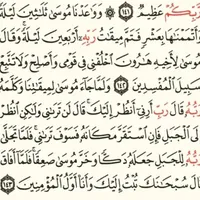 رَّبِّكُمْ عَظِيمٌ ۝١٤١ ۞ وَوَٰعَدْنَا مُوسَىٰ ثَلَٰثِينَ لَيْلَةً
وَأَتْمَمْنَٰهَا بِعَشْرٍ فَتَمَّ مِيقَٰتُ رَبِّهِۦٓ أَرْبَعِينَ لَيْلَةً ۚ وَقَالَ
مُوسَىٰ لِأَخِيهِ هَٰرُونَ ٱخْلُفْنِى فِى قَوْمِى وَأَصْلِحْ وَلَا تَتَّبِعْ
سَبِيلَ ٱلْمُفْسِدِينَ ۝١٤٢ وَلَمَّا جَآءَ مُوسَىٰ لِمِيقَٰتِنَا وَكَلَّمَهُۥ
رَبُّهُۥ قَالَ رَبِّ أَرِنِىٓ أَنظُرْ إِلَيْكَ ۚ قَالَ لَن تَرَىٰنِى وَلَٰكِنِ ٱنظُرْ
إِلَى ٱلْجَبَلِ فَإِنِ ٱسْتَقَرَّ مَكَانَهُۥ فَسَوْفَ تَرَىٰنِى ۚ فَلَمَّا تَجَلَّىٰ
رَبُّهُۥ لِلْجَبَلِ جَعَلَهُۥ دَكًّا وَخَرَّ مُوسَىٰ صَعِقًا ۚ فَلَمَّآ أَفَاقَ
قَالَ سُبْحَٰنَكَ تُبْتُ إِلَيْكَ وَأَنَا۠ أَوَّلُ ٱلْمُؤْمِنِينَ ۝١٤٣